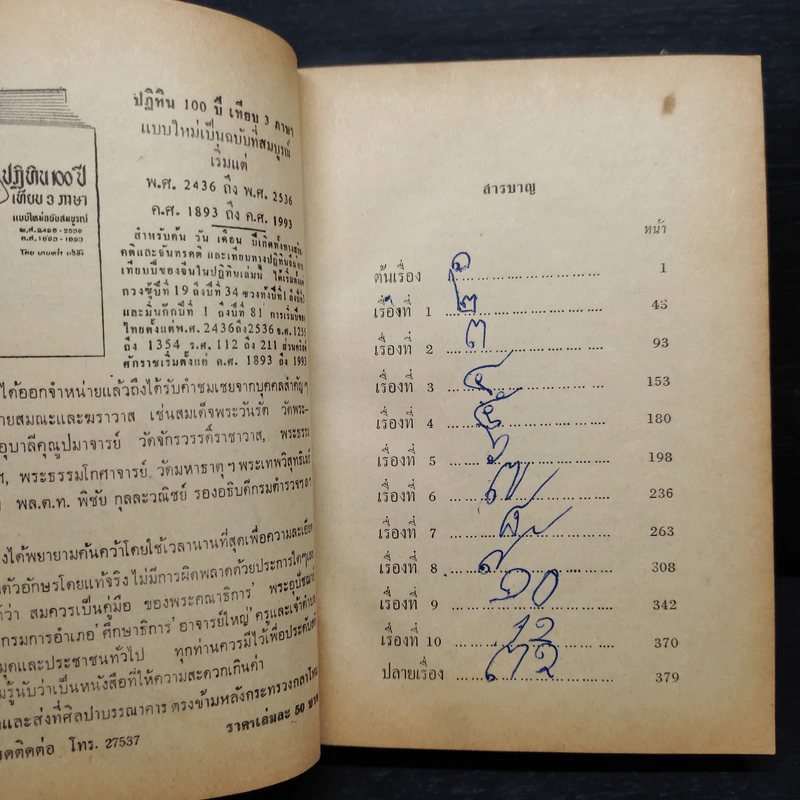 ปฏิทิน 100 ปี เทียบ 3 ภาษา
แบบใหม่เป็นฉบับที่สมบูรณ์
เริ่มแต่
พ.ศ. 2436 ถึง พ.ศ. 2536
ค.ศ. 1893 ถึง ค.ศ. 1993
ปฏิทิน 100 ปี
เทียบ 3 ภาษา
แบบใหม่ฉบับสมบูรณ์
พ.ศ. 2436 - 2536
ค.ศ. 1893 - 1993
สำหรับค้น วัน เดือน ปีเกิดทั้งทางสุริย
คติและจันทรคติ และเทียบทางปฏิทินจีน
เทียบปีของจีนในปฏิทินเล่มนี้ ได้เริ่มตั้งแต่
กวงซู้ปีที่ 19 ถึงปีที่ 34 ซวงท้งปีที่ 1 ถึงปีที่
และมิ่นกักปีที่ 1 ถึงปีที่ 81 การเริ่มปีของ
ไทยตั้งแต่พ.ศ. 2436ถึง2536 จ.ศ. 1255
ถึง 1354 ร.ศ. 112 ถึง 211 ส่วนคริส
ศักราชเริ่มตั้งแต่ ค.ศ. 1893 ถึง 1993
ได้ออกจำหน่ายแล้วถึงได้รับคำชมเชยจากบุคคลสำคัญๆ
ายสมณะและฆราวาส เช่นสมเด็จพระวันรัต วัดพระ-
อุบาลีคุณูปมาจารย์ วัดจักรวรรดิ์ราชาวาส, พระธรรม
ฯ, พระธรรมโกศาจารย์ วัดมหาธาตุฯ พระเทพวิสุทธิเมธี
พล.ต.ท. พิชัย กุลละวณิชย์ รองอธิบดีกรมตำรวจฯลฯ
งได้พยายามค้นคว้าโดยใช้เวลานานที่สุดเพื่อความละเอียด
ตัวอักษรโดยแท้จริง ไม่มีการผิดพลาดด้วยประการใดๆ
ว่า สมควรเป็นคู่มือ ของพระคณาธิการ' พระอุปัชฌาย์
กรมการอำเภอ' ศึกษาธิการ' อาจารย์ใหญ่' ครูและเจ้า
มุดและประชาชนทั่วไป ทุกท่านควรมีไว้เพื่อประดับ
มรู้นับว่าเป็นหนังสือที่ให้ความสะดวกเกินค่า
และส่งที่ศิลปาบรรณาคาร ตรงข้ามหลังกระทรวงกลาโหม
ดติดต่อ โทร. 27537 ราคาเล่มละ 50 บาท
สารบาญ
หน้า
ต้นเรื่อง ๑ 1
เรื่องที่ 1 ๒ 43
เรื่องที่ 2 ๓ 93
เรื่องที่ 3 ๔ 153
เรื่องที่ 4 ๕ 180
เรื่องที่ 5 ๖ 198
เรื่องที่ 6 ๗ 236
เรื่องที่ 7 ๘ 263
เรื่องที่ 8 ๙ 308
เรื่องที่ 9 ๑0 342
เรื่องที่ 10 12 370
ปลายเรื่อง 379